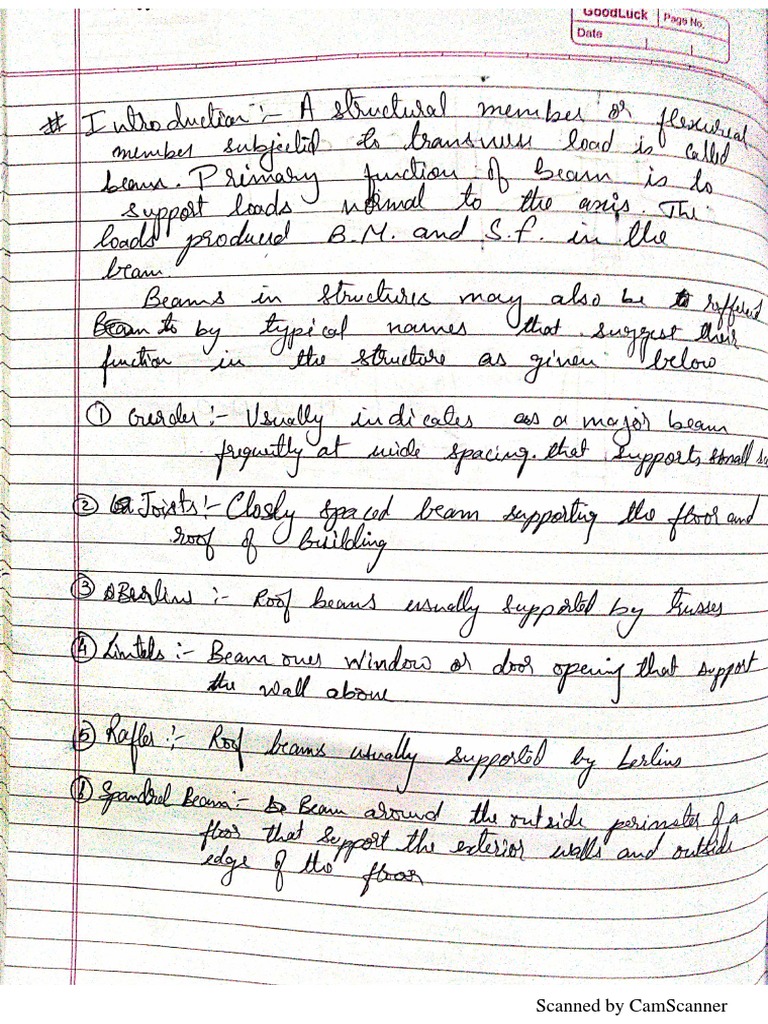 GoodLuck Page No.
Date
# Introduction :- A structural member or flexural
member subjected to transverse load is called
beams. Primary function of beam is to
support loads normal to the axis. The
loads produced B.M. and S.f. in the
beam.
Beams in structures may also be reffered
to by typical names that suggest their
function in the structure as given below
① Girder :- Usually indicates as a major beam
frequently at wide spacing. that supports small
② Joists :- Closly spaced beam supporting the floor and
roof of building
③ Berlins :- Roof beams usually supported by trusses
④ Lintels :- Beam over window or door opening that support
the wall above
⑤ Rafler :- Roof beams usually supported by berlins
⑥ Spandrel Beam :- Beam around the outside perimeter of a
floor that support the exterior walls and outside
edge of the floor
Scanned by CamScanner